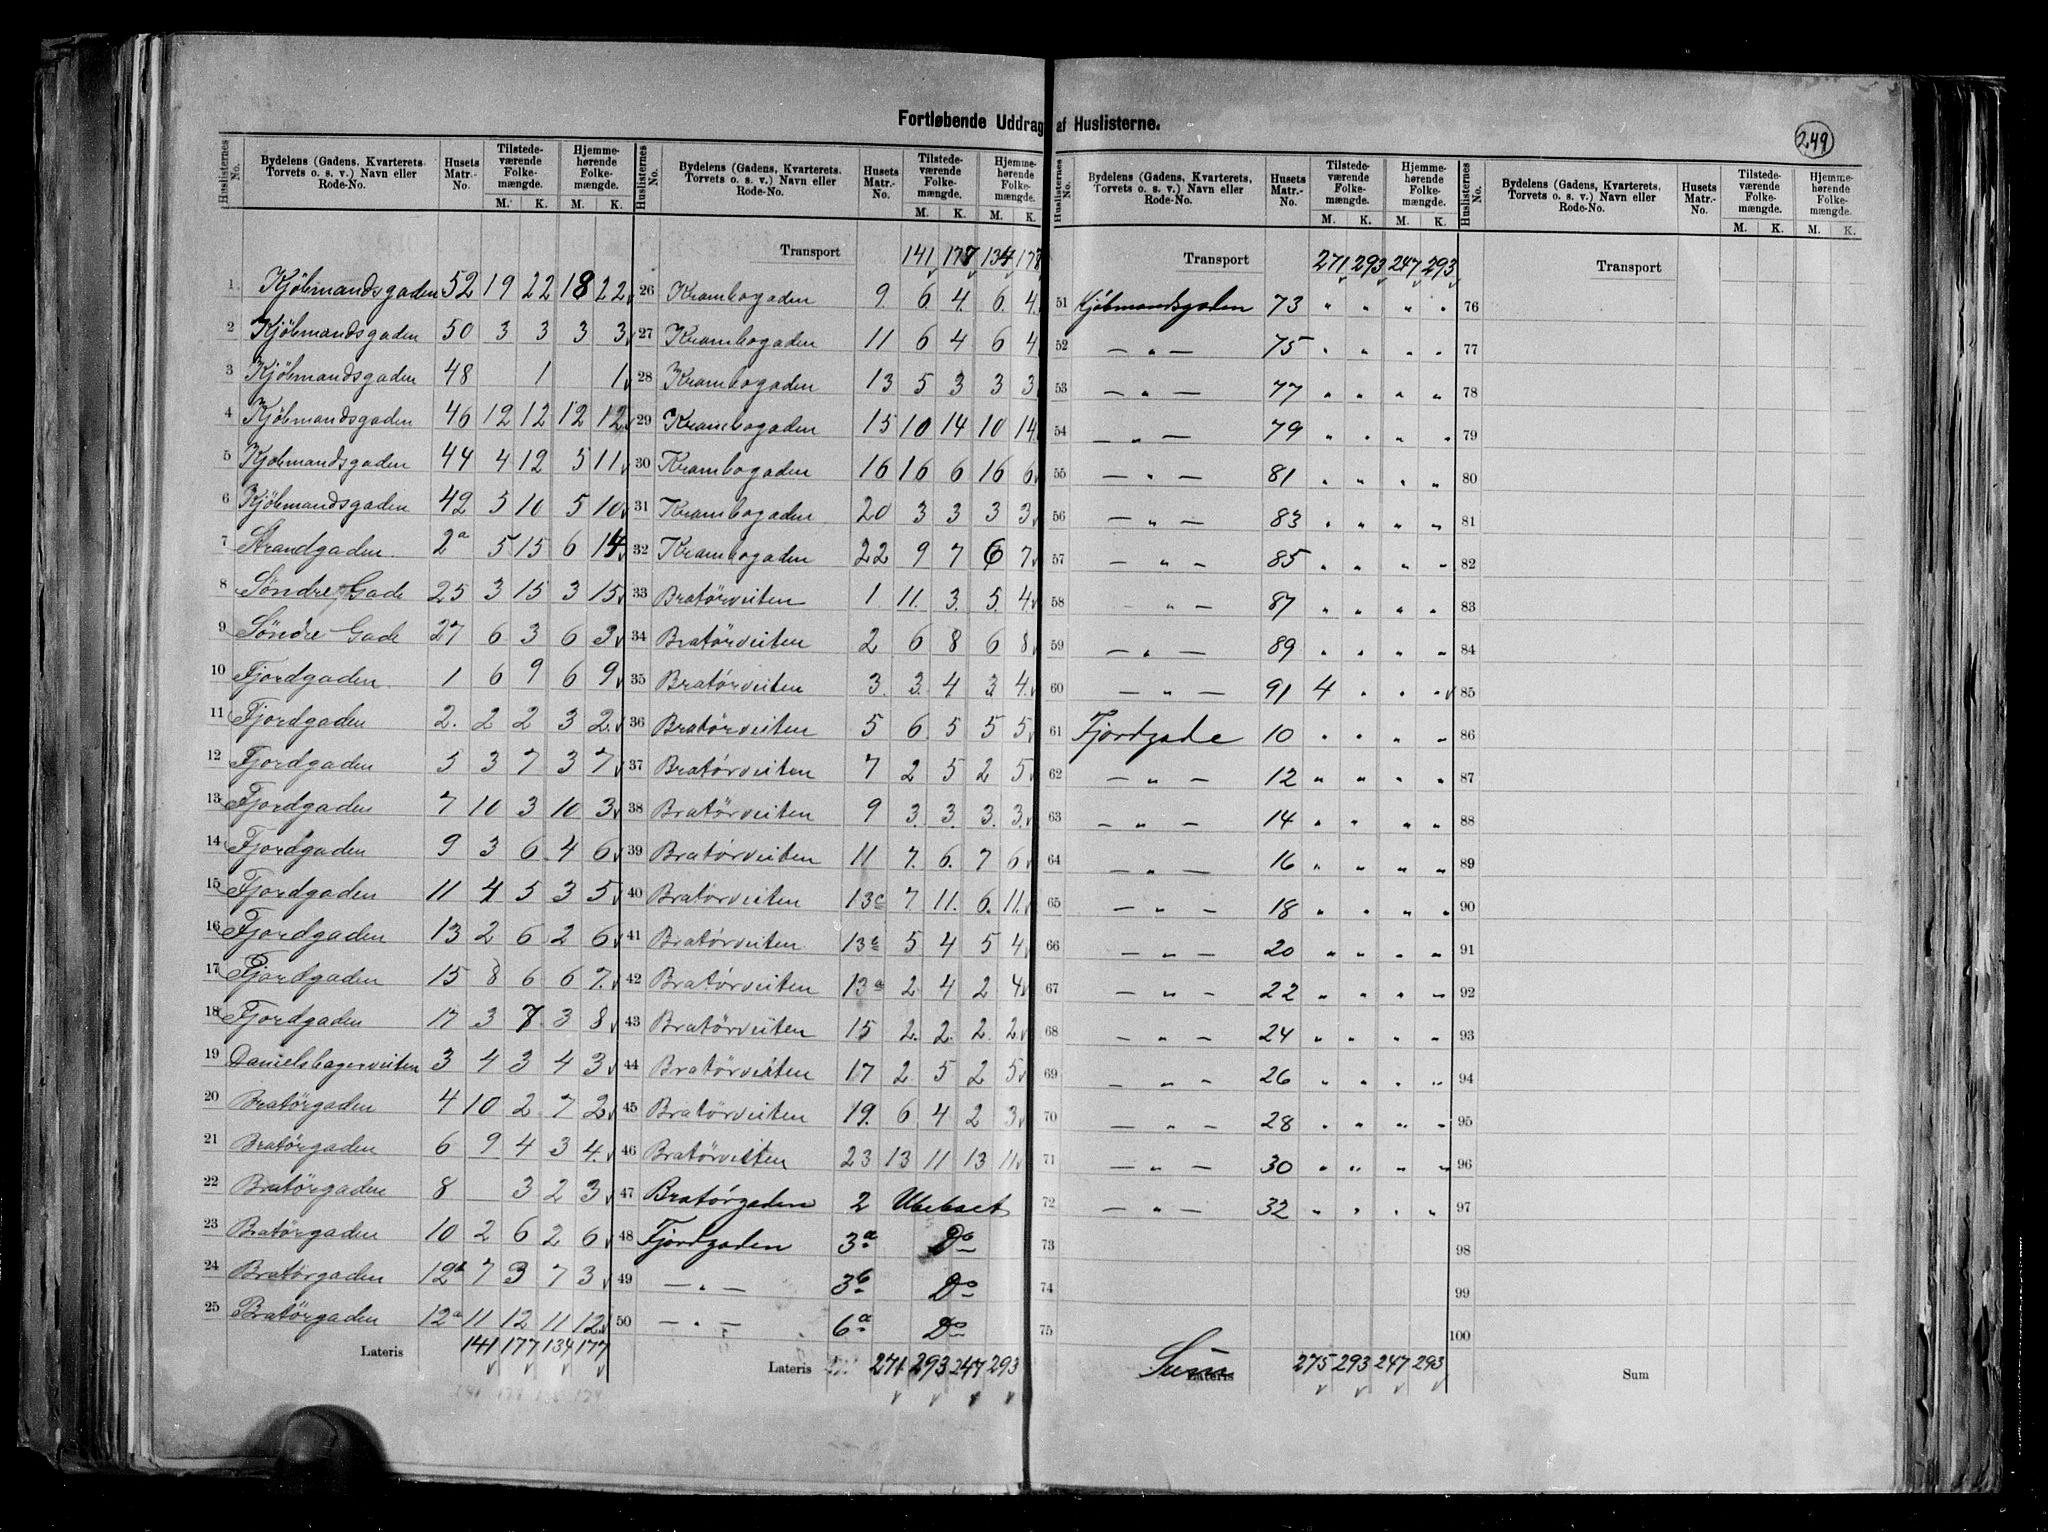 Fortløbende Uddrag af Huslisterne.
249
Huslisternes No. Bydelens (Gadens, Kvarterets, Torvets o. s. v.) Navn eller Rode-No. Husets Matr.-No. Tilstedeværende Folkemængde. M. K. Hjemmehørende Folkemængde. M. K.
1 Kjøbmandsgaden 52 19 22 18 22
2 Kjøbmandsgaden 50 3 3 3 3
3 Kjøbmandsgaden 48 1 1
4 Kjøbmandsgaden 46 12 12 12 12
5 Kjøbmandsgaden 44 4 12 5 11
6 Kjøbmandsgaden 42 5 10 5 10
7 Strandgaden 2a 5 15 6 14
8 Søndre Gade 25 3 15 3 15
9 Søndre Gade 27 6 3 6 3
10 Fjordgaden 1 6 9 6 9
11 Fjordgaden 2. 2 2 3 2
12 Fjordgaden 5 3 7 3 7
13 Fjordgaden 7 10 3 10 3
14 Fjordgaden 9 3 6 4 6
15 Fjordgaden 11 4 5 3 5
16 Fjordgaden 13 2 6 2 6
17 Fjordgaden 15 8 6 6 7.
18 Fjordgaden 17 3 7 3 8
19 Danielsbagerveiten 3 4 3 4 3
20 Bratørgaden 4 10 2 7 2
21 Bratørgaden 6 9 4 3 4.
22 Bratørgaden 8 3 2 3
23 Bratørgaden 10 2 6 2 6
24 Bratørgaden 12b 7 3 7 3
25 Bratørgaden 12a 11 12 11 12
Lateris 141 177 134 177
Huslisternes No. Bydelens (Gadens, Kvarterets, Torvets o. s. v.) Navn eller Rode-No. Husets Matr.-No. Tilstedeværende Folkemængde. M. K. Hjemmehørende Folkemængde. M. K.
Transport 141 178 134 178
26 Krambogaden 9. 6. 4. 6. 4.
27 Krambogaden 11 6 4 6 4
28 Krambogaden 13 5 3 3 3
29 Krambogaden 15 10 14 10 14
30 Krambogaden 16 16 6 16 6
31 Krambogaden 20 3 3 3 3
32 Krambogaden 22 9 7 6 7
33 Bratørveiten 1 11. 3. 5. 4
34 Bratørveiten 2 6 8 6 8
35 Bratørveiten 3. 3. 4 3 4.
36 Bratørveiten 5 6. 5 5 5
37 Bratørveiten 7 2 5 2 5
38 Bratørveiten 9 3. 3. 3. 3.
39 Bratørveiten 11 7. 6. 7 6
40 Bratørveiten 13c 7. 11. 6. 11.
41 Bratørveiten 13b 5 4 5 4
42 Bratørveiten 13a 2 4 2 4
43 Bratørveiten 15 2. 2. 2. 2
44 Bratørveiten 17 2 5 2 5
45 Bratørveiten 19. 6 4 2 3
46 Bratørveiten 23 13 11 13 11
47 Bratørgaden 2 Ubeboet
48 Fjordgaden 3a Do
49 — " — 3b Do
50 — " — 6a Do
Lateris 271 293 247 293
Huslisternes No. Bydelens (Gadens, Kvarterets, Torvets o. s. v.) Navn eller Rode-No. Husets Matr.-No. Tilstedeværende Folkemængde. M. K. Hjemmehørende Folkemængde. M. K.
Transport 271 293 247 293
51 Kjøbmandsgaden 73 " " " "
52 — " — 75 " " " "
53 — " — 77 " " " "
54 — " — 79 " " " "
55 — " — 81 " " " "
56 — " — 83 " " " "
57 — " — 85 " " " "
58 — " — 87 " " " "
59 — " — 89 " " " "
60 — " — 91 4 " " "
61 Fjordgade 10 " " " "
62 — " — 12 " " " "
63 — " — 14 " " " "
64 — " — 16 " " " "
65 — " — 18 " " " "
66 — " — 20 " " " "
67 — " — 22 " " " "
68 — " — 24 " " " "
69 — " — 26 " " " "
70 — " — 28 " " " "
71 — " — 30 " " " "
72 — " — 32 " " " "
73
74
75
Sum Lateris 275 293 247 293
Huslisternes No. Bydelens (Gadens, Kvarterets, Torvets o. s. v.) Navn eller Rode-No. Husets Matr.-No. Tilstedeværende Folkemængde. M. K. Hjemmehørende Folkemængde. M. K.
Transport
76
77
78
79
80
81
82
83
84
85
86
87
88
89
90
91
92
93
94
95
96
97
98
99
100
Sum